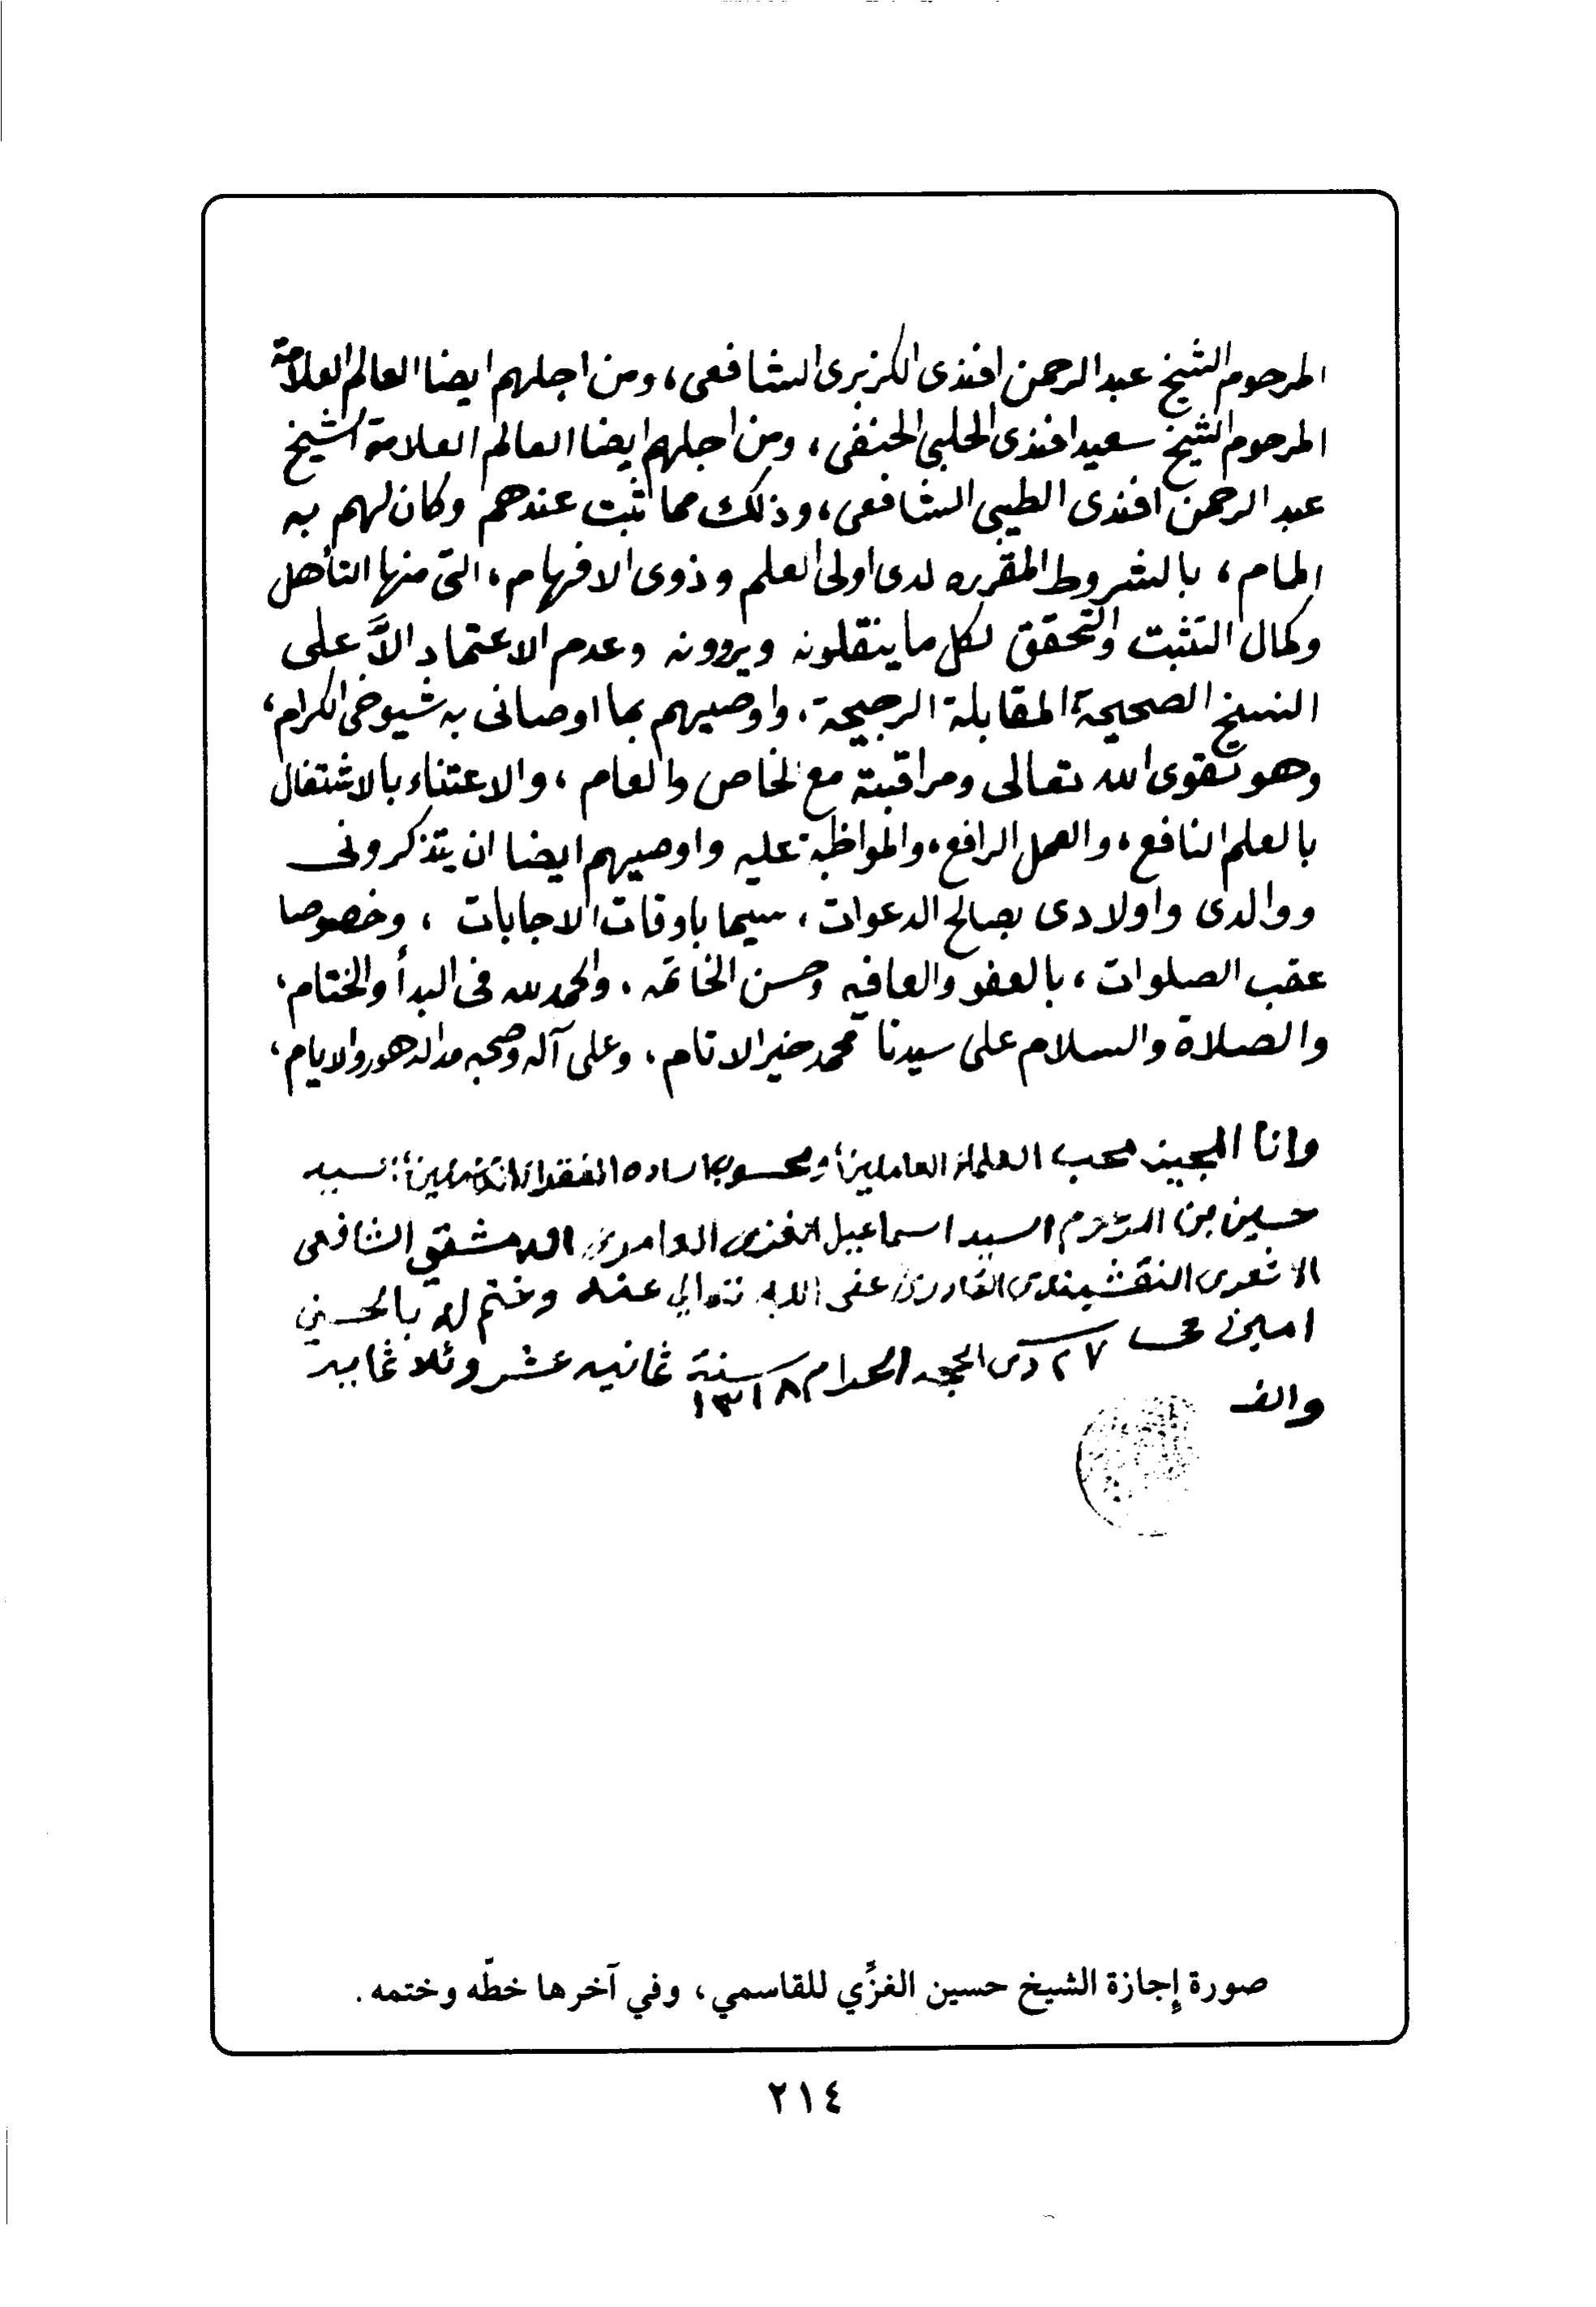 المرحوم الشيخ عبد الرحمن افندى الكزبرى الشافعى، ومن اجلهم ايضا العالم العلامة
المرحوم الشيخ سعيد افندى الحلبي الحنفى، ومن اجلهم ايضا العالم العلامة الشيخ
عبد الرحمن افندى الطيبى الشافعى، وذلك مما ثبت عندهم وكان لهم به
المام، بالشروط المقرره لدى اولى العلم وذوى الافهام، التى منها التأهل
وكمال التثبت والتحقق لكل ما ينقلونه ويروونه وعدم الاعتماد الاَّ على
النسخ الصحيحة المقابلة الرجيحة، واوصيهم بما اوصانى به شيوخى الكرام،
وهو تقوى الله تعالى ومراقبته مع الخاص والعام، والاعتناء بالاشتغال
بالعلم النافع، والعمل الرافع، والمواظبة عليه واوصيهم ايضا ان يتذكرونى
ووالدى واولادى بصالح الدعوات، سيما باوقات الاجابات، وخصوصا
عقب الصلوات، بالعفو والعافيه وحسن الخاتمه، والحمد لله فى البدأ والختام،
والصلاة والسلام على سيدنا محمد خير الانام، وعلى آله وصحبه مدا الدهور والايام،
وانا المجيز محب العلماء العاملين، ومحسوب الساده الفقراء السيد
حسين بن المرحوم السيد اسماعيل الغزى العامرى الدمشقي الشافعى
الاشعرى النقشبندى القادرى عفى الله تعالي عنه وختم له بالحسنى
امين ٢٧ ذى الحجه الحرام سنة ١٣١٨ ثمانيه عشر وثلاثمايه
والف
صورة إجازة الشيخ حسين الغزِّي للقاسمي، وفي آخرها خطّه وختمه.
٢١٤